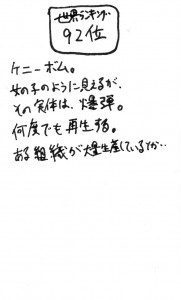 世界ランキング
92位
ケニーボム。
女の子のように見えるが、
その実体は、爆弾。
何度でも再生する。
ある組織が大量生産しているとか…